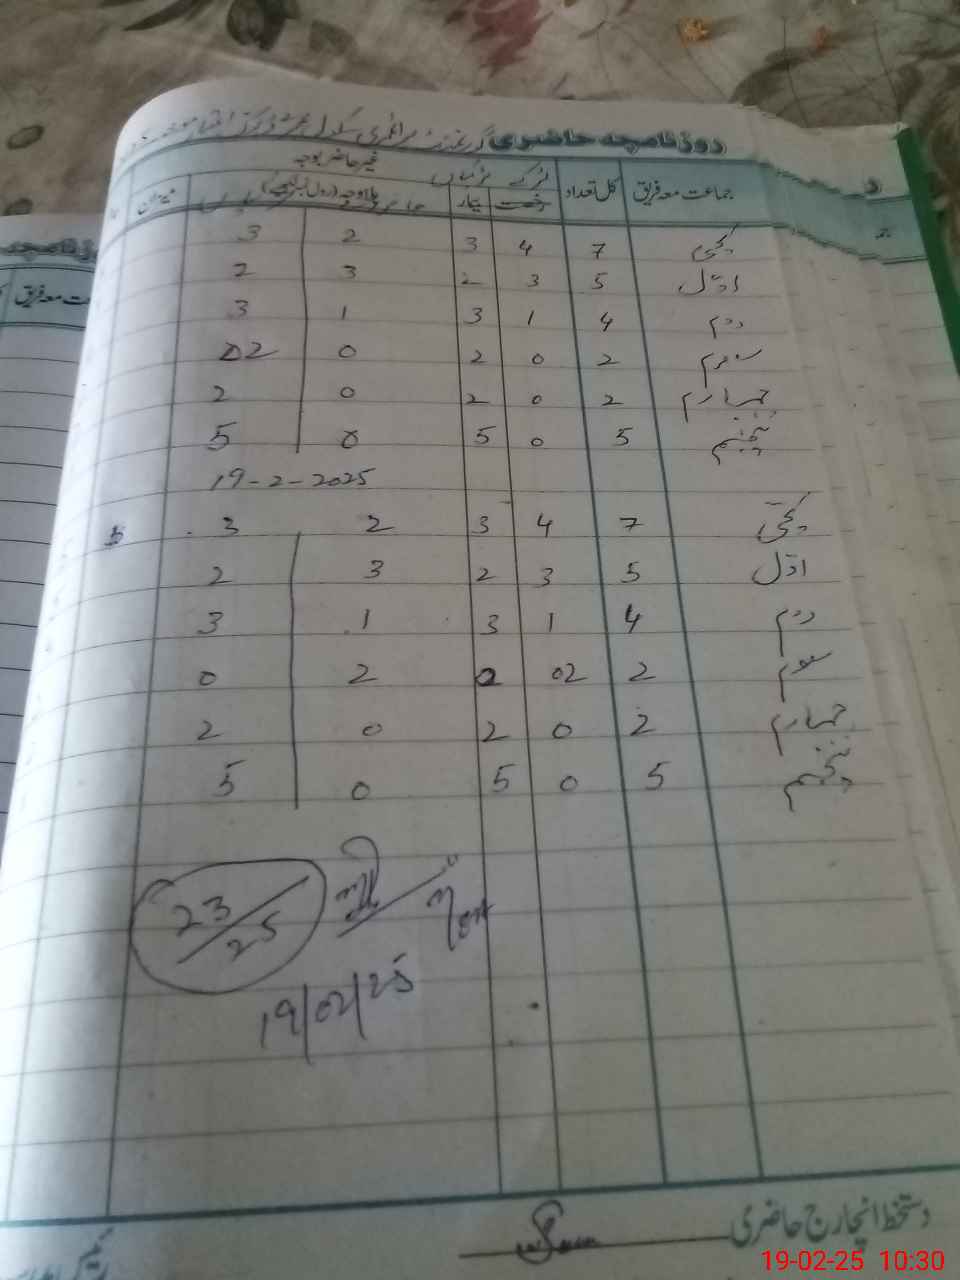 روزنامچہ حاضری گورنمنٹ پرائمری سکول
جماعت معہ فریق کل تعداد لڑکے لڑکیاں غیر حاضر بوجہ
رخصت بیمار بلاوجہ (رول نمبر لکھیئے) میزان
کچی 7 4 3 2 3
اوّل 5 3 2 3 2
دوم 4 1 3 1 3
سوم 2 0 2 0 02
چہارم 2 0 2 0 2
پنجم 5 0 5 0 5
19-2-2025
کچی 7 4 3 2 3
اوّل 5 3 2 3 2
دوم 4 1 3 1 3
سوم 2 02 0 2 0
چہارم 2 0 2 0 2
پنجم 5 0 5 0 5
23/25
19/02/25
دستخط انچارج حاضری
19-02-25 10:30
روزنامچہ حاضری
جماعت معہ فریق